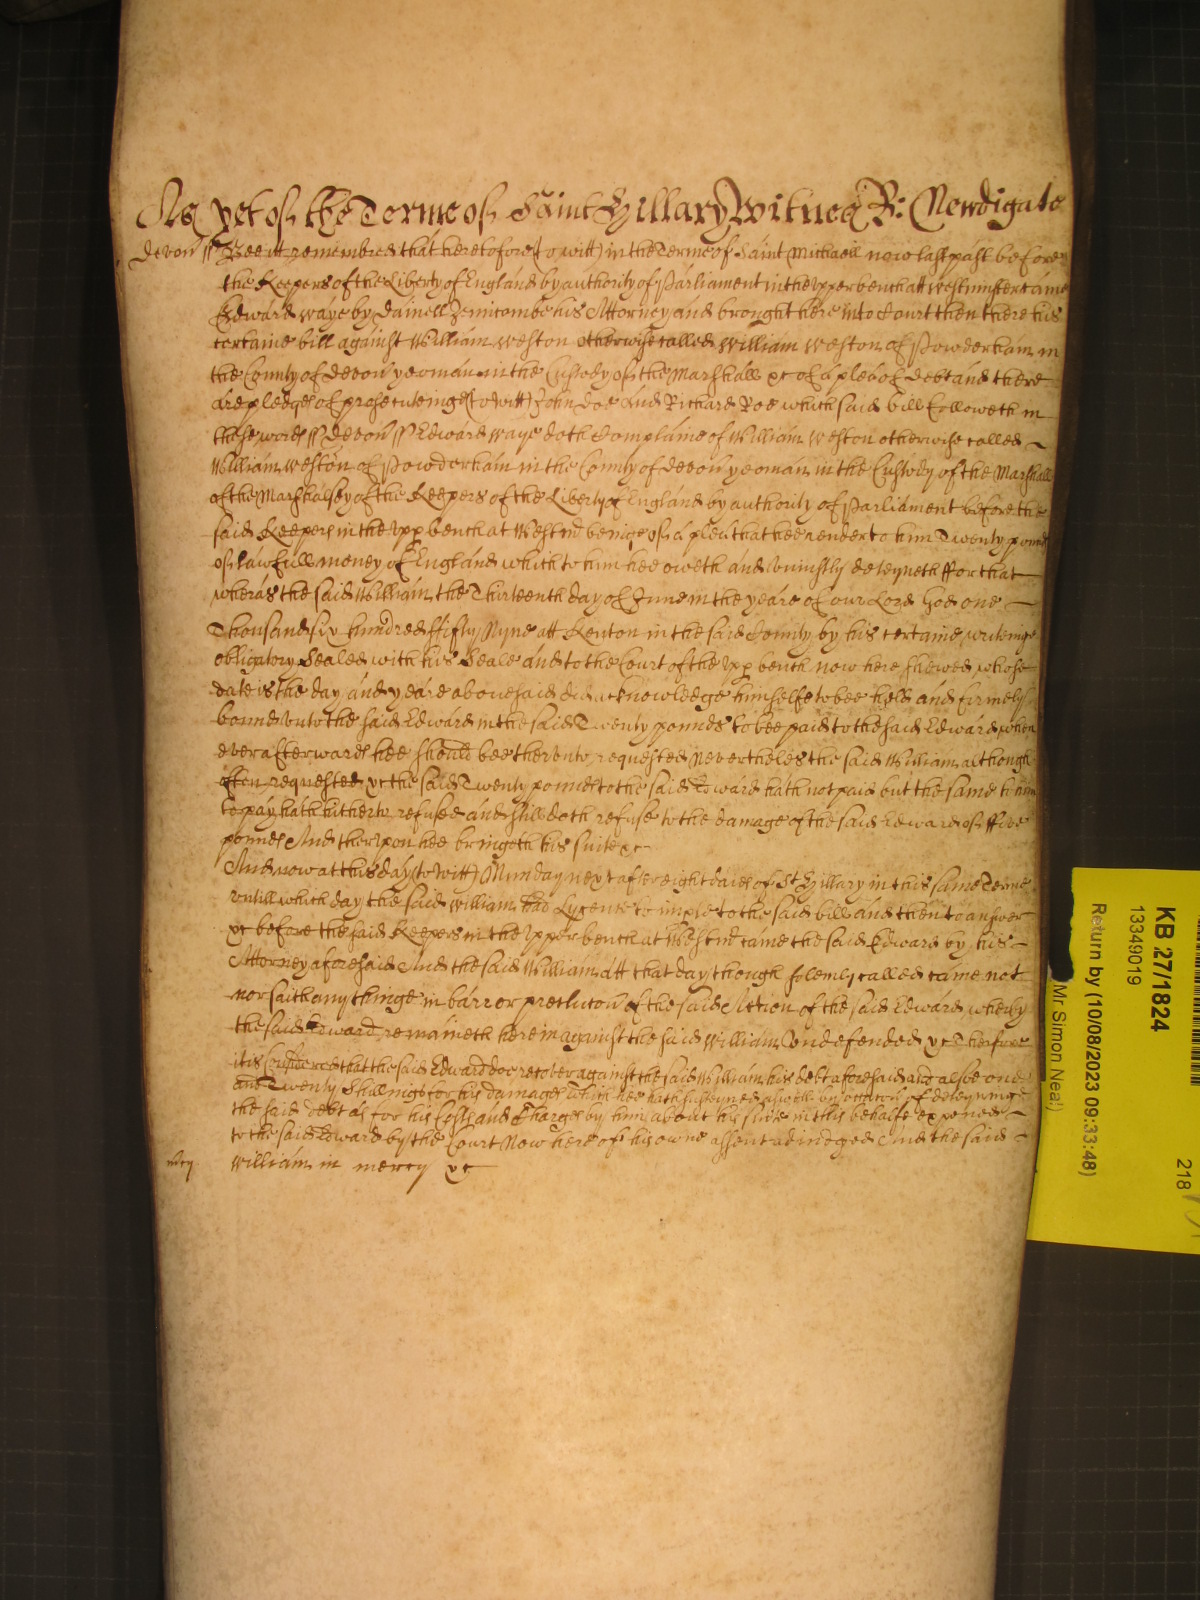 As yet of the Terme of Saint Hillary Witnes R: Newdigate
Devon ss Bee it remembred that heretofore (to witt) in the Terme of Saint Michaell now last past before
the Keepers of the Liberty of England by authority of Parliament in the Upper bench att Westminster came
Edward Waye by Daniell Zernicombe his Attorney and brought here into Court then there his
certaine bill against William Weston otherwise called William Weston of Powderham in
the County of Devon yeoman in the Custody of the Marshall &c of a plea of debt and there
are pledges of prosecuteinge (to witt) John Doe and Richard Roe which said bill followeth in
these words ss Devon ss Edward Waye doth Complaine of William Weston otherwise called
William Weston of Powderham in the County of Devon yeoman in the Custody of the Marshall
of the Marshalsey of the Keepers of the Liberty of England by authority of Parliament before the
said Keepers in the Upp bench at Westm beinge of a plea that hee render to him Twenty pounds
of lawfull money of England which to him hee oweth and uniustly deteyneth ffor that
wheras the said William the Thirteenth day of June in the yeare of our Lord God one
Thousand six hundred ffifty Nyne att Kenton in the said County by his certaine writeinge
obligatory Sealed with his Seale and to the Court of the Upp bench now here shewed whose
date is the day and yeare abovesaid did acknowledge himselfe to bee held and firmely
bound unto the said Edward in the said Twenty pounds to bee paid to the said Edward when
ever afterwards hee should bee therunto requested Nevertheles the said William although
often requested &c the said Twenty pounds to the said Edward hath not paid but the same to him
to pay hath hitherto refused and still doth refuse to the damage of the said Edward of ffive
pounds And therupon hee bringeth his suite &c
And now at this day (to witt) Munday next after eight daies of St Hillary in this same Terme
untill which day the said William had Lycence to imple to the said bill and then to answer
&c before the said Keepers in the Upper bench at Westm came the said Edward by his
Attorney aforesaid And the said William att that day though solemly called came not
nor saith any thinge in barr or preclucon of the said Action of the said Edward wherby
the said Edward remaineth herein against the said William Undefended &c Therfore
it is Considered that the said Edward doe recover against the said William his debt aforesaid and alsoe one
and Twenty Shillings for his damages which hee hath susteyned aswell by occasion of deteyning
the said debt as for his Costs and Charges by him about his suite in this behalfe expended
to the said Edward by the Court Now here of his owne assent adiudged And the said
mercy William in mercy &c
KB 27/1824
13349019
Return by (10/08/2023 09:33:48)
Mr Simon Neal)
218